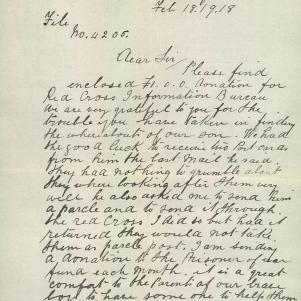 Feb 18th 1918
File
No. 4205.
Dear Sir
Please find
enclosed £1.0.0 donation for
Red Cross Information Bureau
We are very grateful to you for the
trouble you have taken in finding
the whereabouts of our son. We had
the good luck to receive two post cards
from him the last mail he said
they had nothing to grumble about
they where looking after them very
well he also asked me to send him
a parcle and to send it through
the Red Cross I did so but had it
returned they would not take
them as parcle post. I am sending
a donation to the Prisoner of war
fund each month. it is a great
comfort to the Parents of our brave
boys to have some one to help them